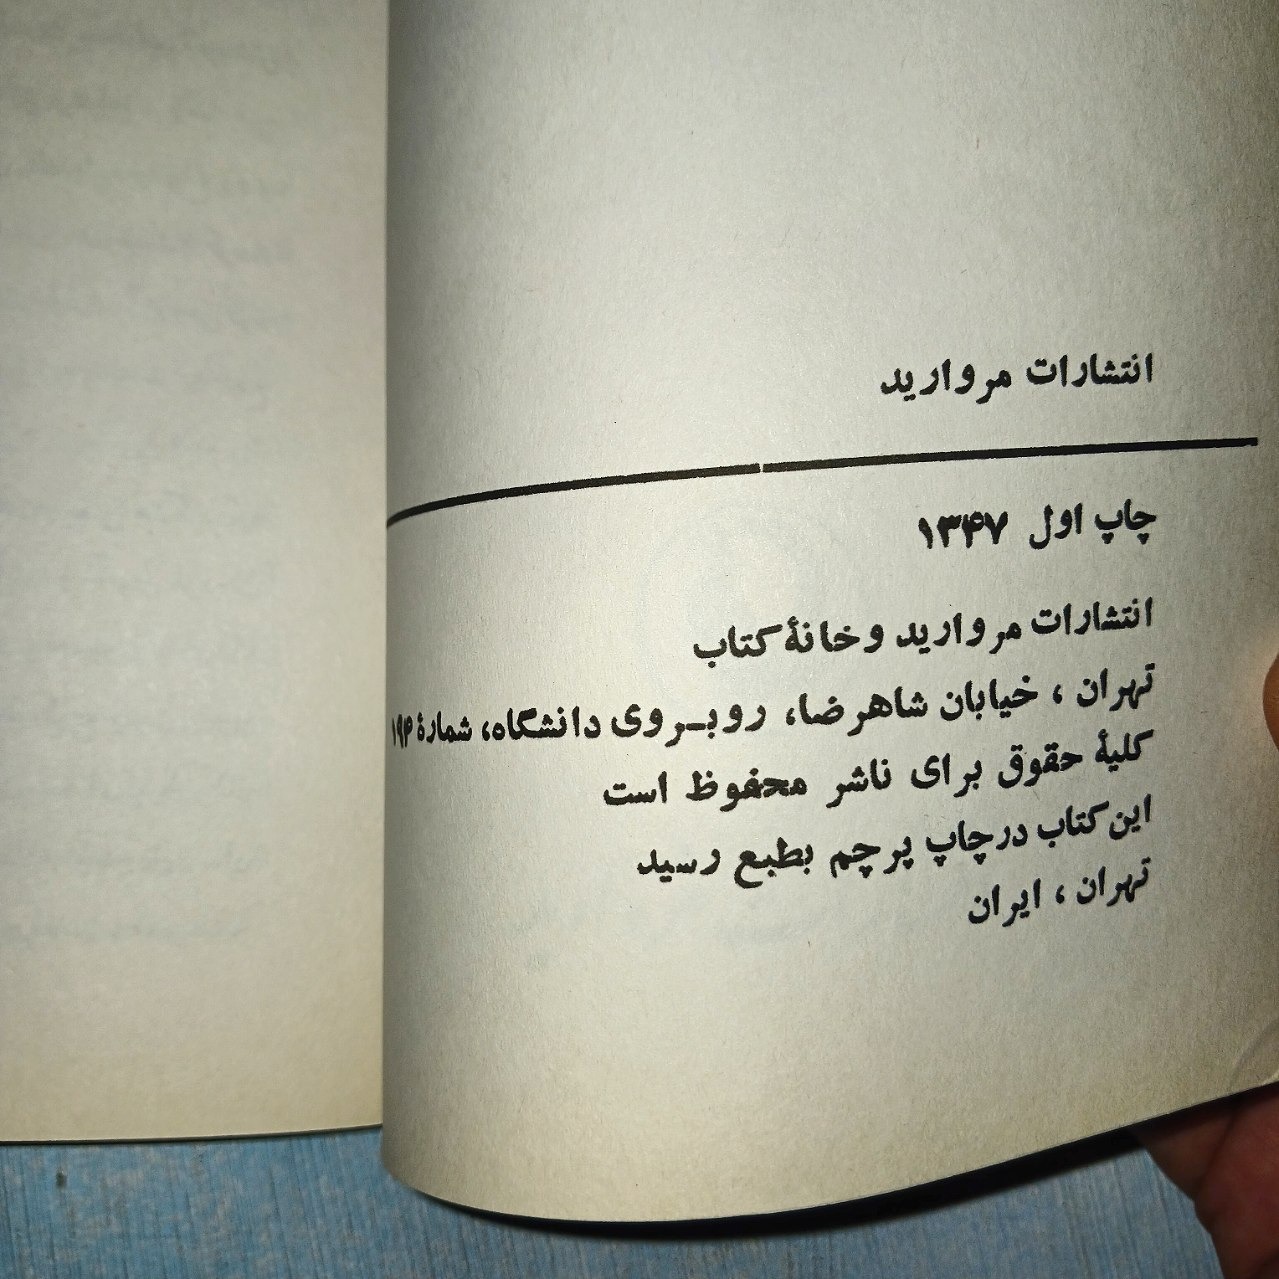 انتشارات مروارید
چاپ اول ۱۳۴۷
انتشارات مروارید و خانهٔ کتاب
تهران ، خیابان شاهرضا، روبـروی دانشگاه، شمارهٔ ۱۹۴
کلیهٔ حقوق برای ناشر محفوظ است
این کتاب در چاپ پرچم بطبع رسید
تهران ، ایران